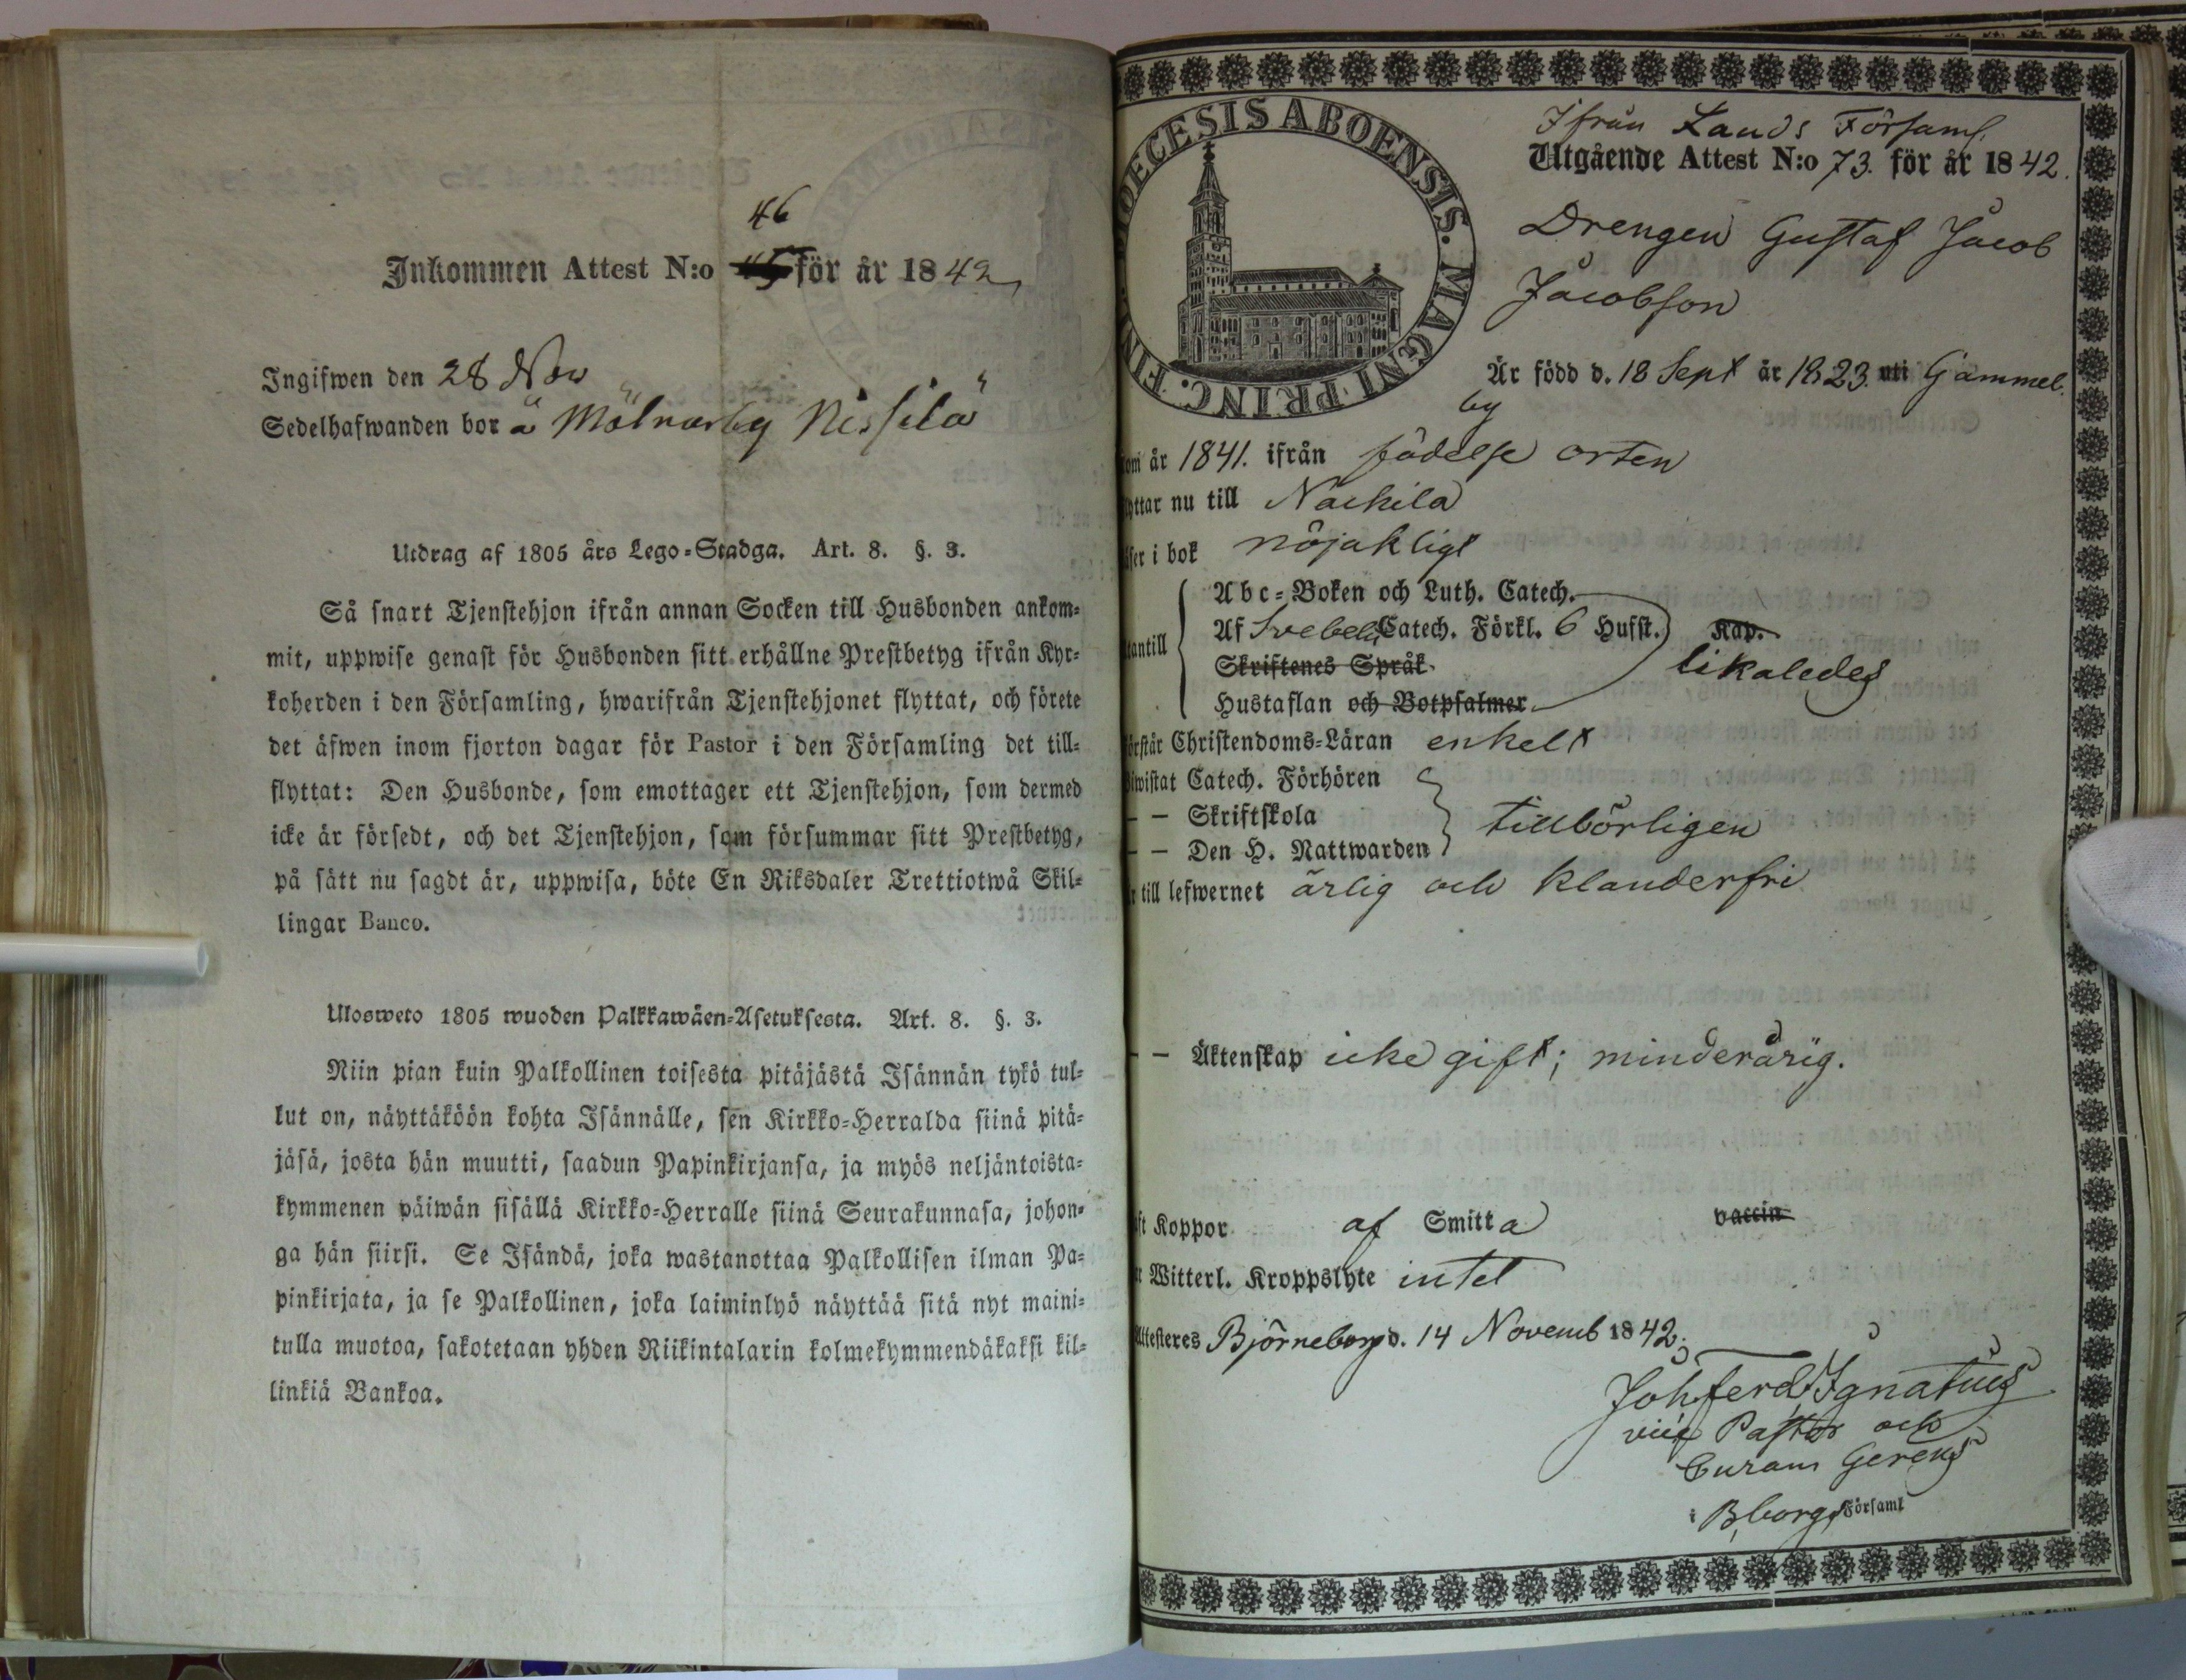 46
Inkommen Attest N:o 45 för år 1842
Ingifwen den 28 Nov
Sedelhafwanden bor å Mölnarby Nissilä
Utdrag af 1805 års Lego=Stadga. Art. 8. §. 3.
Så snart Tjenstehjon ifrån annan Socken till Husbonden ankom=
mit, uppwise genast för Husbonden sitt erhållne Prestbetyg ifrån Kyr=
koherden i den Församling, hwarifrån Tjenstehjonet flyttat, och förete
det äfwen inom fjorton dagar för Pastor i den Församling det till=
flyttat: Den Husbonde, som emottager ett Tjenstehjon, som dermed
icke är försedt, och det Tjenstehjon, som försummar sitt Prestbetyg,
på sätt nu sagdt är, uppwisa, böte En Riksdaler Trettiotwå Skil=
lingar Banco.
Ulosweto 1805 wuoden Palkkawäen=Asetuksesta. Art. 8. §. 3.
Niin pian kuin Palkollinen toisesta pitäjästä Isännän tykö tul=
lut on, näyttäköön kohta Isännälle, sen Kirkko=Herralda siinä pitä=
jäsä, josta hän muutti, saadun Papinkirjansa, ja myös neljäntoista=
kymmenen päiwän sisällä Kirkko=Herralle siinä Seurakunnasa, johon=
ga hän siirsi. Se Isändä, joka wastanottaa Palkollisen ilman Pa=
pinkirjata, ja se Palkollinen, joka laiminlyö näyttää sitä nyt maini=
tulla muotoa, sakotetaan yhden Riikintalarin kolmekymmendäkaksi kil=
linkiä Bankoa.
DIOECESIS ABOENSIS. MAGNI PRINC. FIN
Ifrån Lands Församl.
Utgående Attest N:o 73. för år 1842.
Drengen Gustaf Jacob
Jacobsson
Är född d. 18 Sept år 1823. uti Gammel
by
om år 1841. ifrån födelse orten
yttar nu till Nackila
äser i bok nöjaktligt
Abc=Boken och Luth. Catech.
tantill Af Svebeli Catech. Förkl. 6 Hufst. Kap.
Skriftenes Språk. likaledes
Hustaflan och Botpsalmer
örstår Christendoms=Läran enkelt
iwistat Catech. Förhören
— — Skriftskola tillbörligen
— — Den H. Nattwarden
r till lefwernet ärlig och klanderfri
— — Äktenskap icke gift; minderårig.
ft Koppor af Smitta vaccin
r Witterl. Kroppslyte intet
Attesteres Björneborg d. 14 Novemb 1842.
Joh. Ferd. Ignatius
vice Pastor och
Curam Gerens
i B,borgs Församl